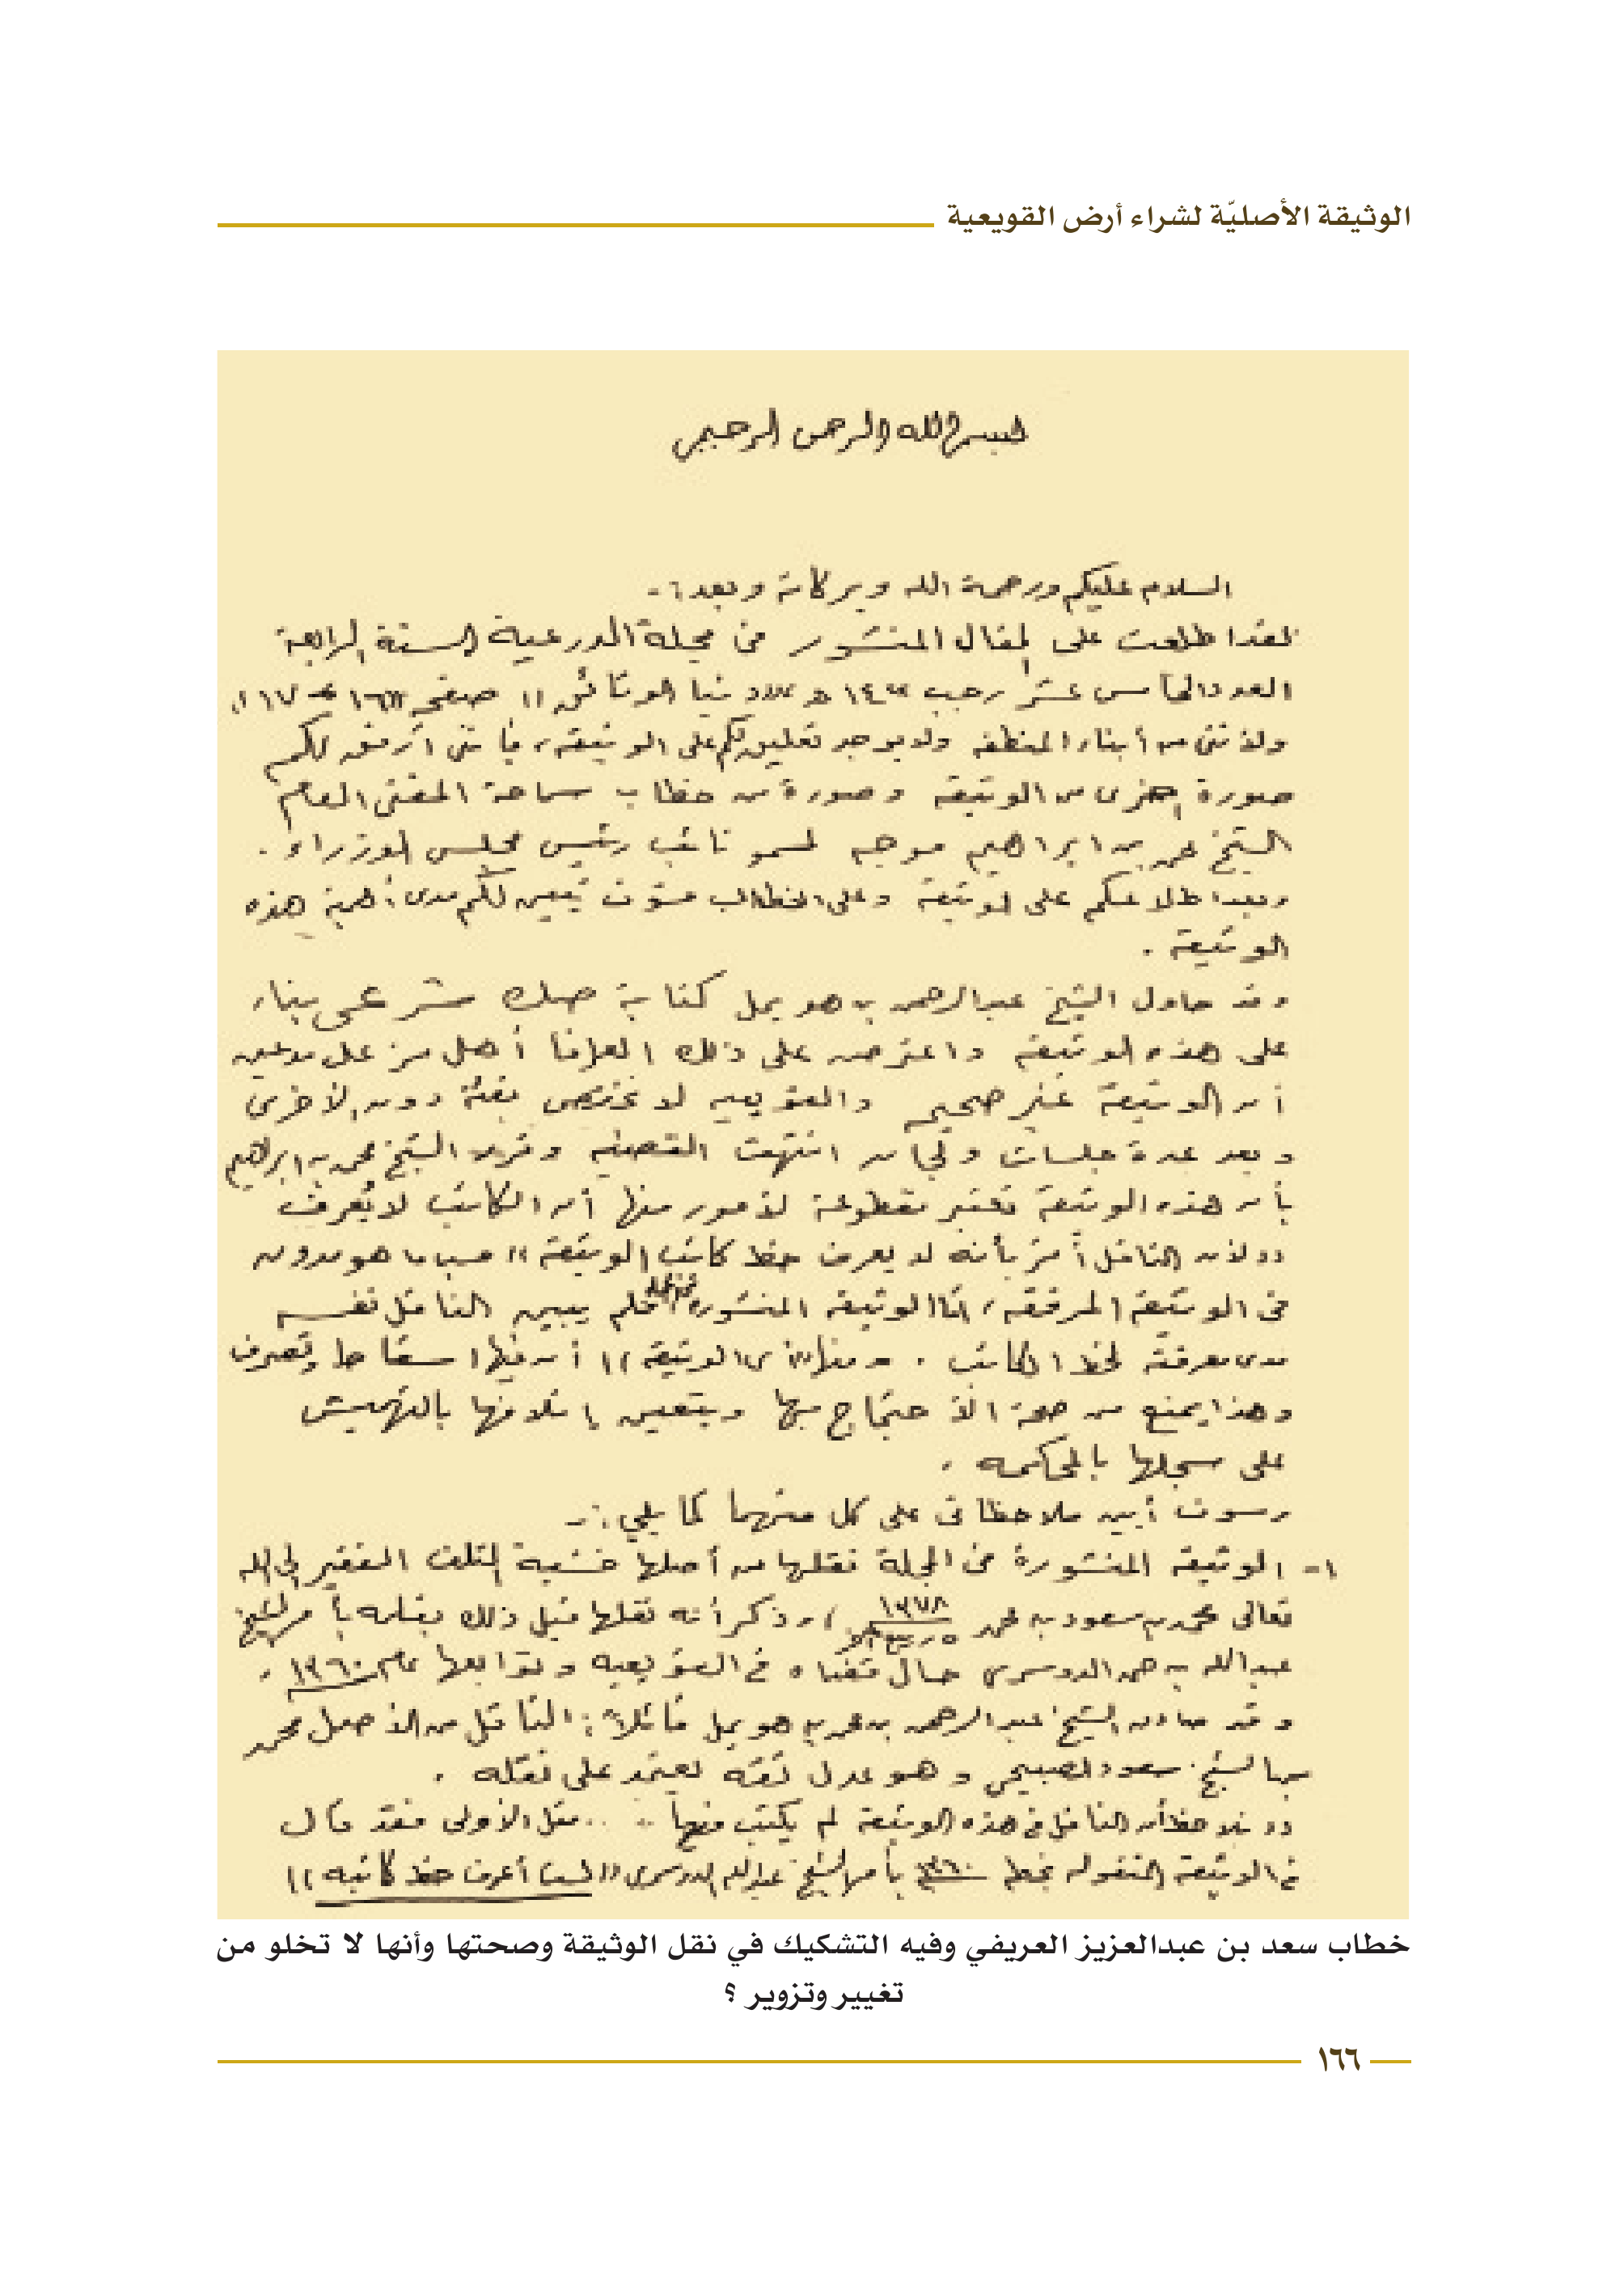 الوثيقة الأصليّة لشراء أرض القويعية
بسم الله الرحمن الرحيم
السلام عليكم ورحمة الله وبركاته وبعد :-
لقد اطلعت على المقال المنشور في مجلة الدرعية السنة الرابعة
العدد الخامس عشر رجب ١٤٢٢ هـ دنيا الوثائق (( صفحه
ولأنني من أبناء المنطقه ولا يوجد تعليق لكم على الوثيقه، فإنني أرفق لكم
صورة أخرى من الوثيقه وصورة من خطاب سماحة المفتي العام
الشيخ محمد بن ابراهيم موجه لسمو نائب رئيس مجلس الوزراء .
وبعد اطلاعكم على الوثيقة وعلى الخطاب سوف يتبين لكم مدى أهمية هذه
الوثيقة .
وقد حاول الشيخ عبدالرحمن بن هويمل كتابة صك شرعي بناء
على هذه الوثيقه واعترض على ذلك العرافا أهل مزعل مدعين
أن الوثيقة غير صحيحه والقويعيه لا تختص بفئة دون الأخرى
وبعد عدة جلسات ولجان انتهت القضيه وقرر الشيخ محمد بن ابراهيم
بأن هذه الوثيقة تعتبر مقطوعة لأمور منها أن الكاتب لا يُعرف
(( ولأن الناقل أقر بأنه لا يعرف خط كاتب الوثيقة )) حسب ما هو مدون
في الوثيقة المرفقه، أما الوثيقه المنشوره فلم يبين الناقل نفسه
مدى معرفته لخط الكاتب . ومنها (( أي الوثيقة )) أن فيها اسقاطا وتصرف
وهذا يمنع من صحة الاحتجاج بها ويتعين إتلافها بالتهميش
على سجلها بالمحكمه .
وسوف أبين ملاحظاتي على كل منهما كما يلي :-
١- الوثيقه المنشورة في المجلة نقلها من أصلها خشية التلف الفقير إلى الله
تعالى محمد بن سعود بن محمد ١٣٧٨ ، وذكر أنه نقلها قبل ذلك بقلمه بأمر الشيخ
عبدالله بن حمد الدوسري حال قضاه في القويعيه وتوابعها عام ١٣٦٠ .
وقد صادق الشيخ عبدالرحمن بن محمد بن هويمل قائلاً : الناقل من الأصل محمد
بن الشيخ سعود الصبيحي وهو عدل ثقه يعتمد على نقله .
(( نلاحظ أن الناقل في هذه الوثيقة لم يكتب فيها .. مثل الأولى فقد قال
في الوثيقة المنقوله بخطه ١٣٦٠ بأمر الشيخ عبدالله الدوسري (( لست أعرف خط كاتبه ))
خطاب سعد بن عبدالعزيز العريفي وفيه التشكيك في نقل الوثيقة وصحتها وأنها لا تخلو من
تغيير وتزوير ؟
١٦٦